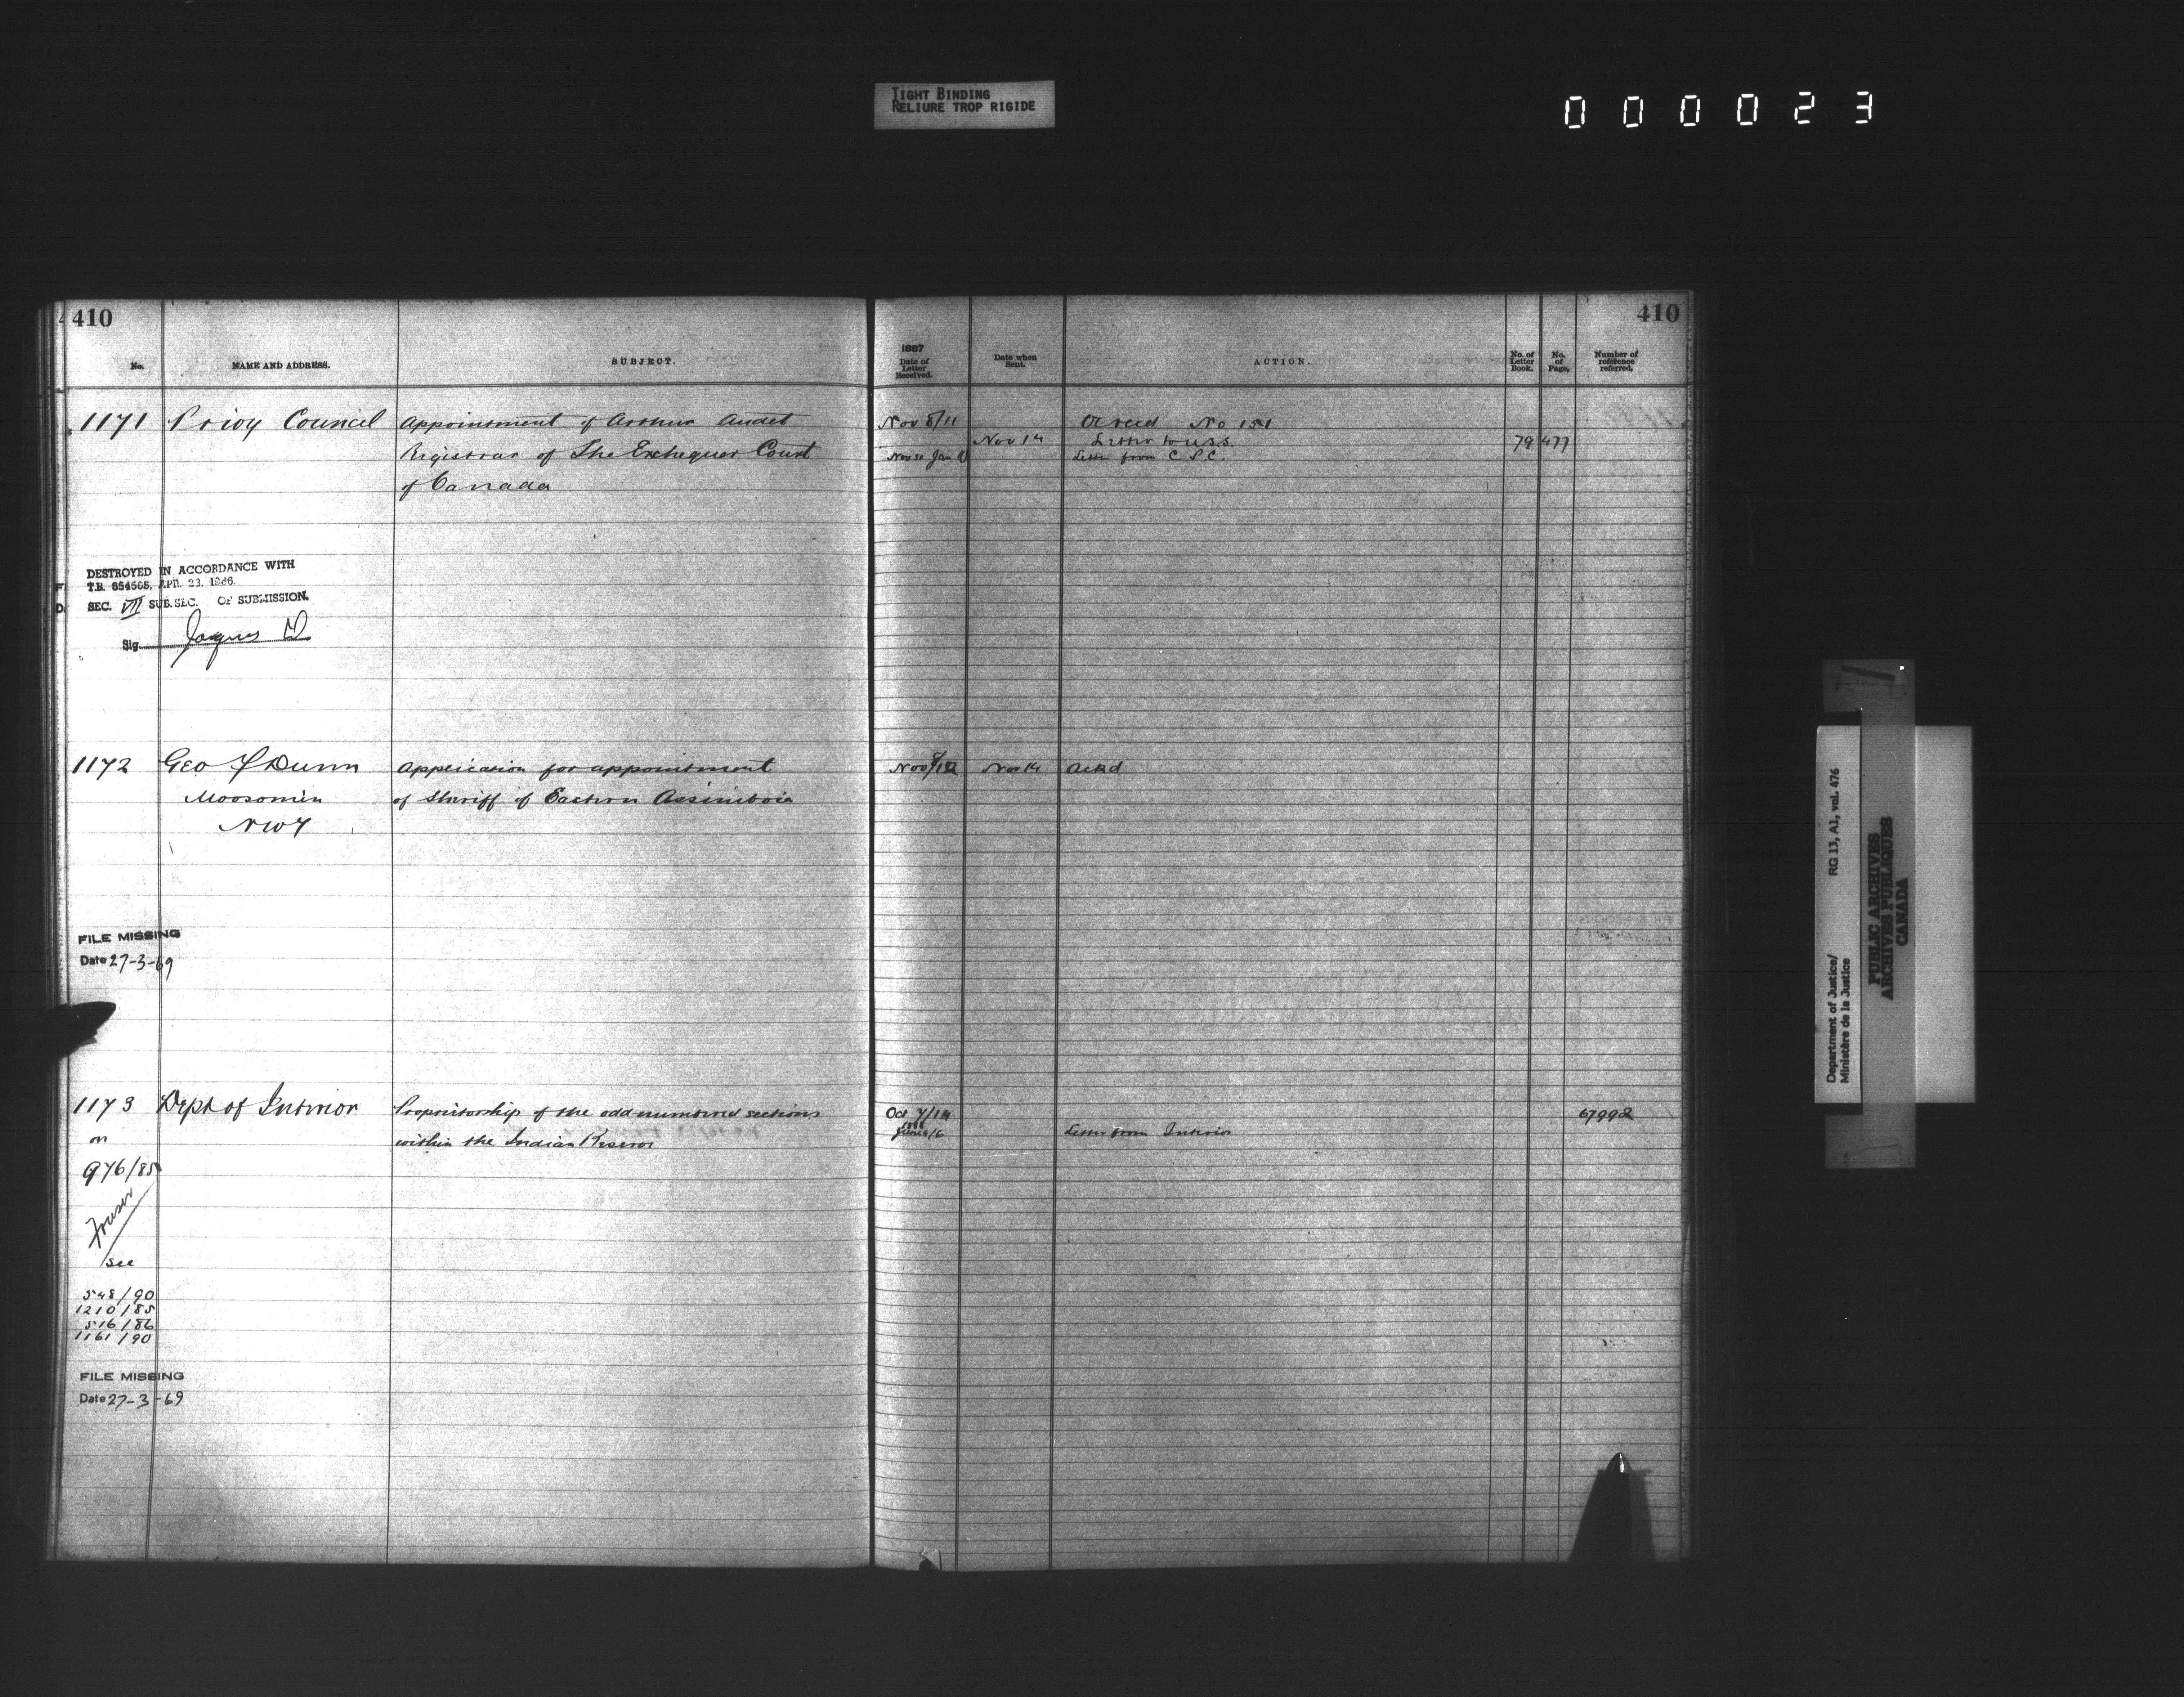 TIGHT BINDING
RELIURE TROP RIGIDE
000023
410
No.
NAME AND ADDRESS.
SUBJECT.
1171 Privy Council Appointment of Arthur Audet
Registrar of The Exchequer Court
of Canada
DESTROYED IN ACCORDANCE WITH
T.B. 654505, APR. 23, 1966.
SEC. VII SUB.SEC. OF SUBMISSION.
Sig. Jaques
1172 Geo Dunn Application for appointment
Moosomin of Sheriff of Eastern Assiniboia
NWT
FILE MISSING
Date 27-3-69
1173 Dept of Interior Proprietorship of the odd numbered sections
on within the Indian Reserves
976/85
Fraser
see
548/90
1210/85
516/86
1161/90
FILE MISSING
Date 27-3-69
410
1887
Date of
Letter
Received.
Date when
Sent.
ACTION.
No. of
Letter
Book.
No.
of
Page.
Number of
reference
referred.
Nov 8/11 No 151
Nov 14 Letter to U.S.S. 79 477
Letter from C P.C.
Nov Nov 14 Ackd
Oct 7/14 67992
1888
June 4/6 Letter from Interior
Department of Justice/ RG 13, A1, vol. 476
Ministère de la Justice
PUBLIC ARCHIVES
ARCHIVES PUBLIQUES
CANADA